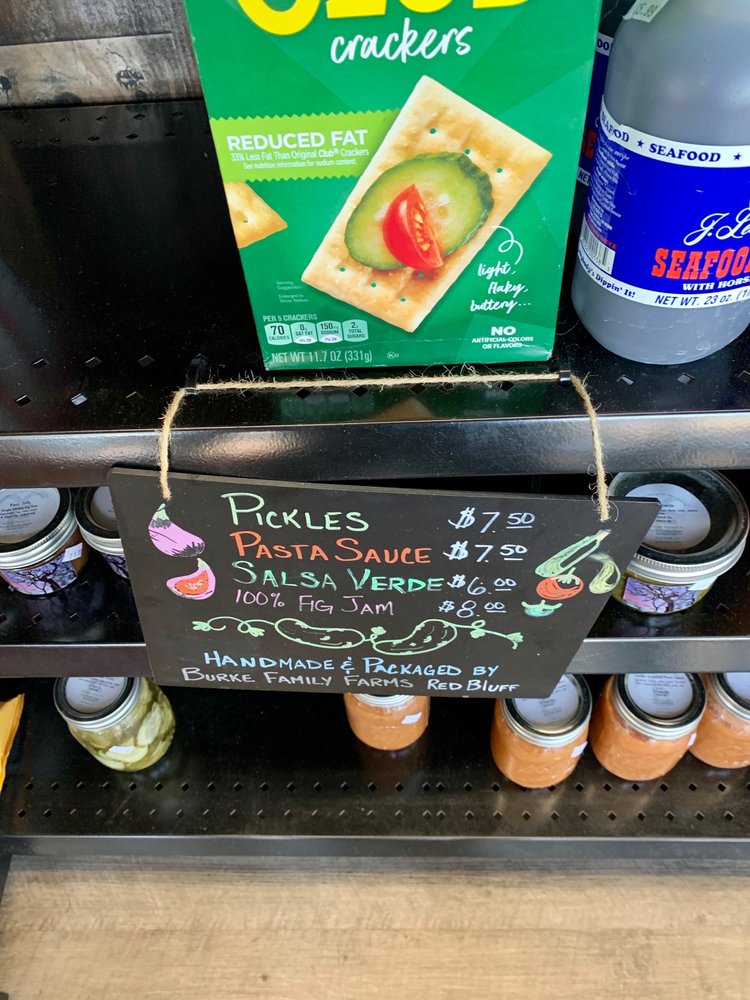 CLUB
crackers
REDUCED FAT
33% Less Fat Than Original Club® Crackers
See nutrition information for sodium content.
light,
flaky,
buttery...
Serving
Suggestion
Enlarged to
Show Texture
PER 5 CRACKERS
70 CALORIES
0g SAT FAT
150mg SODIUM
2g TOTAL SUGARS
NO
ARTIFICIAL COLORS
OR FLAVORS
NET WT 11.7 OZ (331g)
SEAFOOD ★ SEAFOOD ★
SEAFOO
WITH HORS
Dippin' It!
NET WT. 23 OZ.
PICKLES $7.50
PASTA SAUCE $7.50
SALSA VERDE $6.00
100% FIG JAM $8.00
HANDMADE & PACKAGED BY
BURKE FAMILY FARMS RED BLUFF